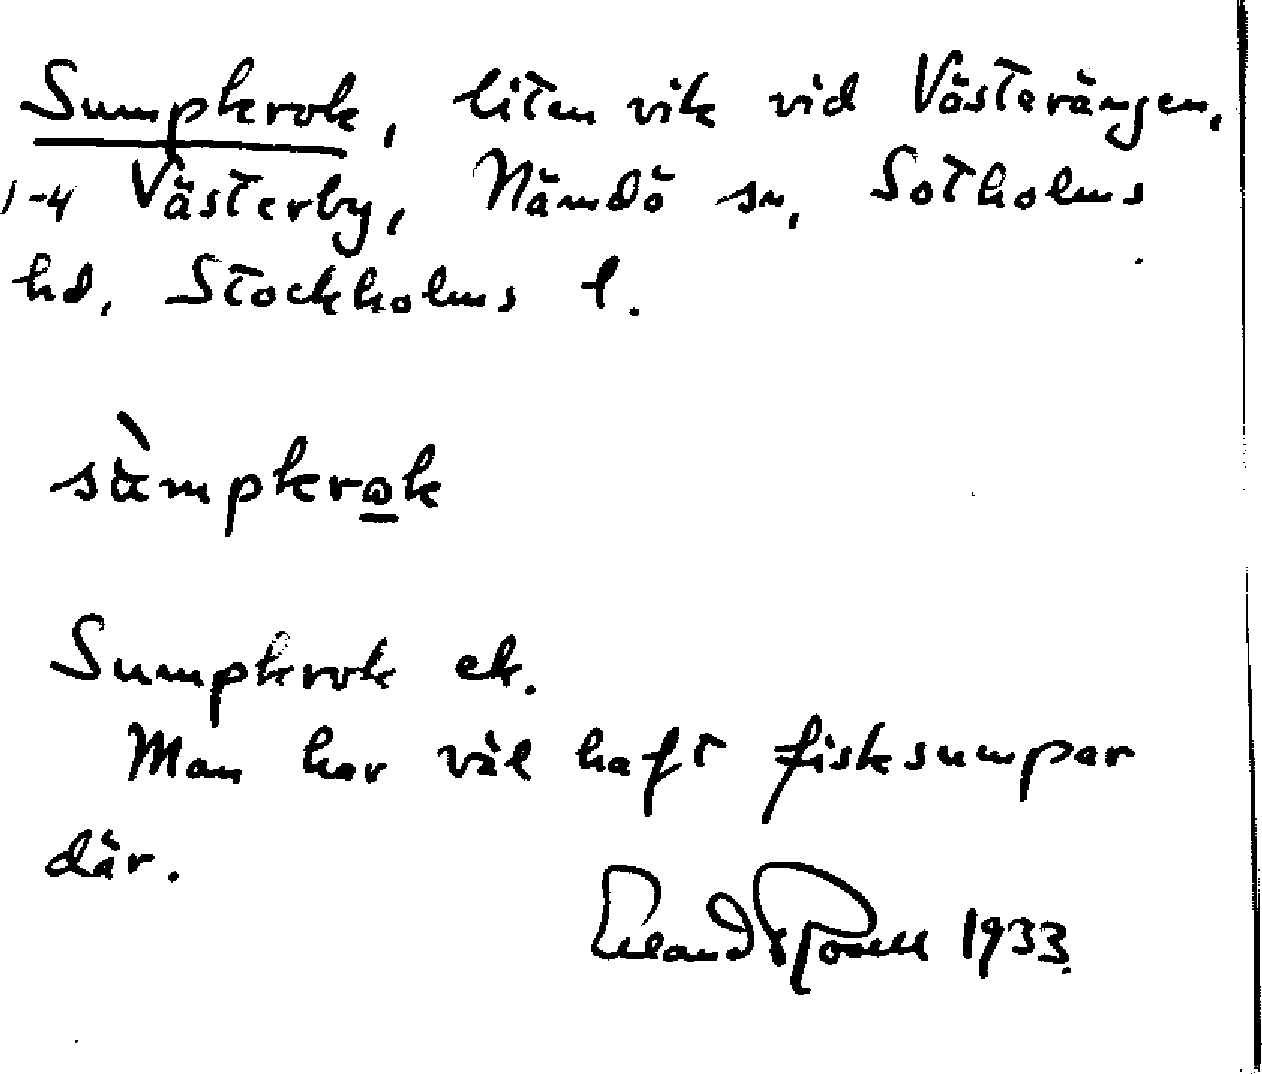 Sumpkrok, liten vik vid Västerängen,
1-4 Västerby, Nämdö sn, Sotholms
hd, Stockholms l.
sùmpkrok
Sumpkrok ek.
Man har väl haft fisksumpar
där.
Erland Rosell 1933.